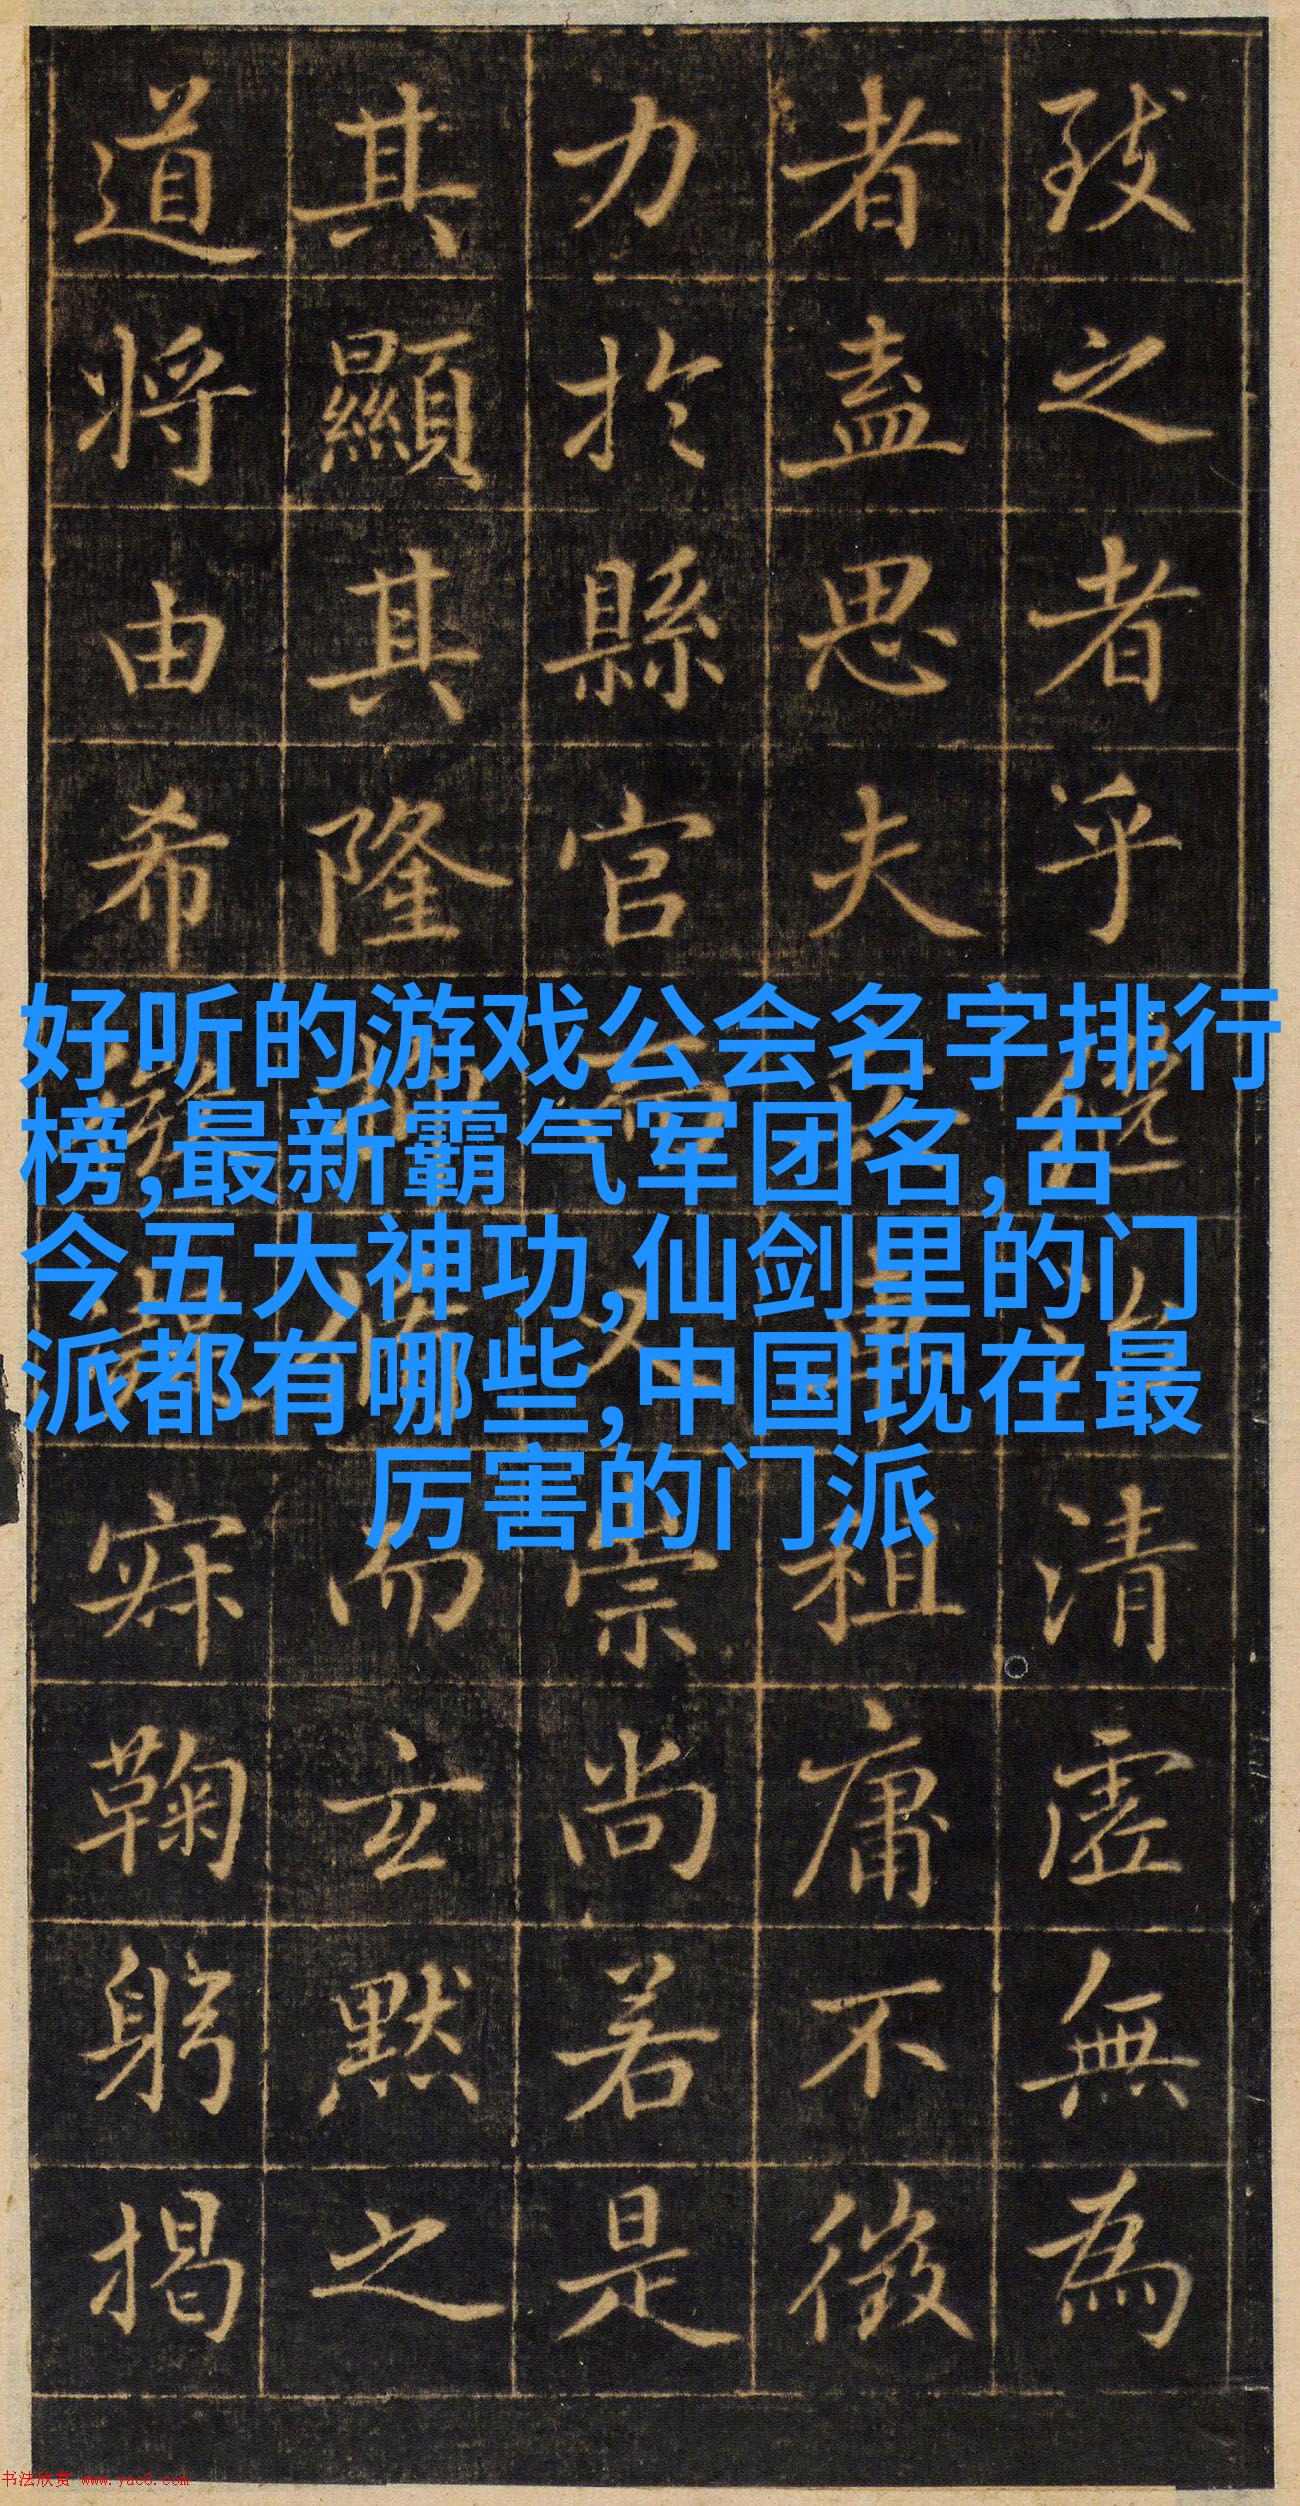 致之者乎
清虛無為
者盡思夫
租庸不徵
力於縣官
崇尚若是
其顯其隆
而玄默之
道將由希
寂鞠躬揭
好听的游戏公会名字排行
榜,最新霸气军团名,古
今五大神功,仙剑里的门
派都有哪些,中国现在最
厉害的门派
书法欣赏 www.yac8.com